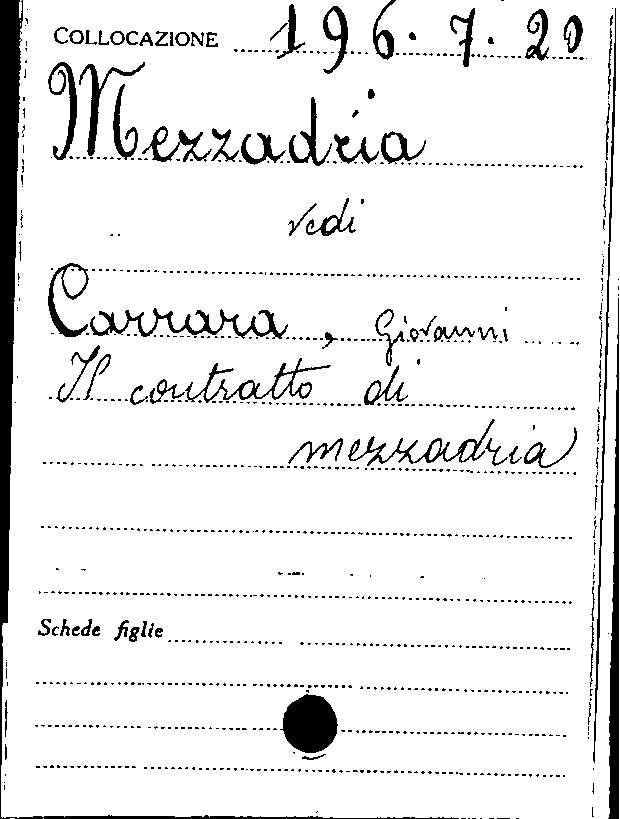 COLLOCAZIONE 196.7.20
Mezzadria
vedi
Carrara, Giovanni
Il contratto di
mezzadria
Schede figlie